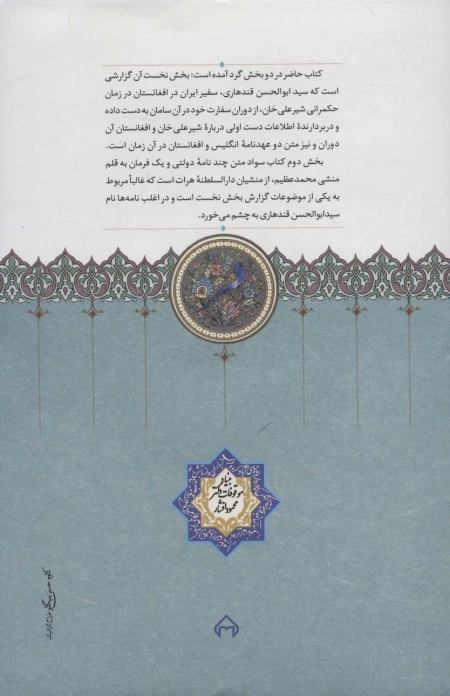 کتاب حاضر در دو بخش گرد آمده است: بخش نخست آن گزارشی
است که سید ابوالحسن قندهاری، سفیر ایران در افغانستان در زمان
حکمرانی شیرعلی‌خان، از دوران سفارت خود در آن سامان به دست داده
و دربردارندهٔ اطلاعات دست اولی دربارهٔ شیرعلی خان و افغانستان آن
دوران و نیز متن دو عهدنامهٔ انگلیس و افغانستان در آن زمان است.
بخش دوم کتاب سواد متن چند نامهٔ دولتی و یک فرمان به قلم
منشی محمدعظیم، از منشیان دارالسلطنهٔ هرات است که غالباً مربوط
به یکی از موضوعات گزارش بخش نخست است و در اغلب نامه‌ها نام
سیدابوالحسن قندهاری به چشم می‌خورد.
بنیاد
موقوفات دکتر
محمود افشار